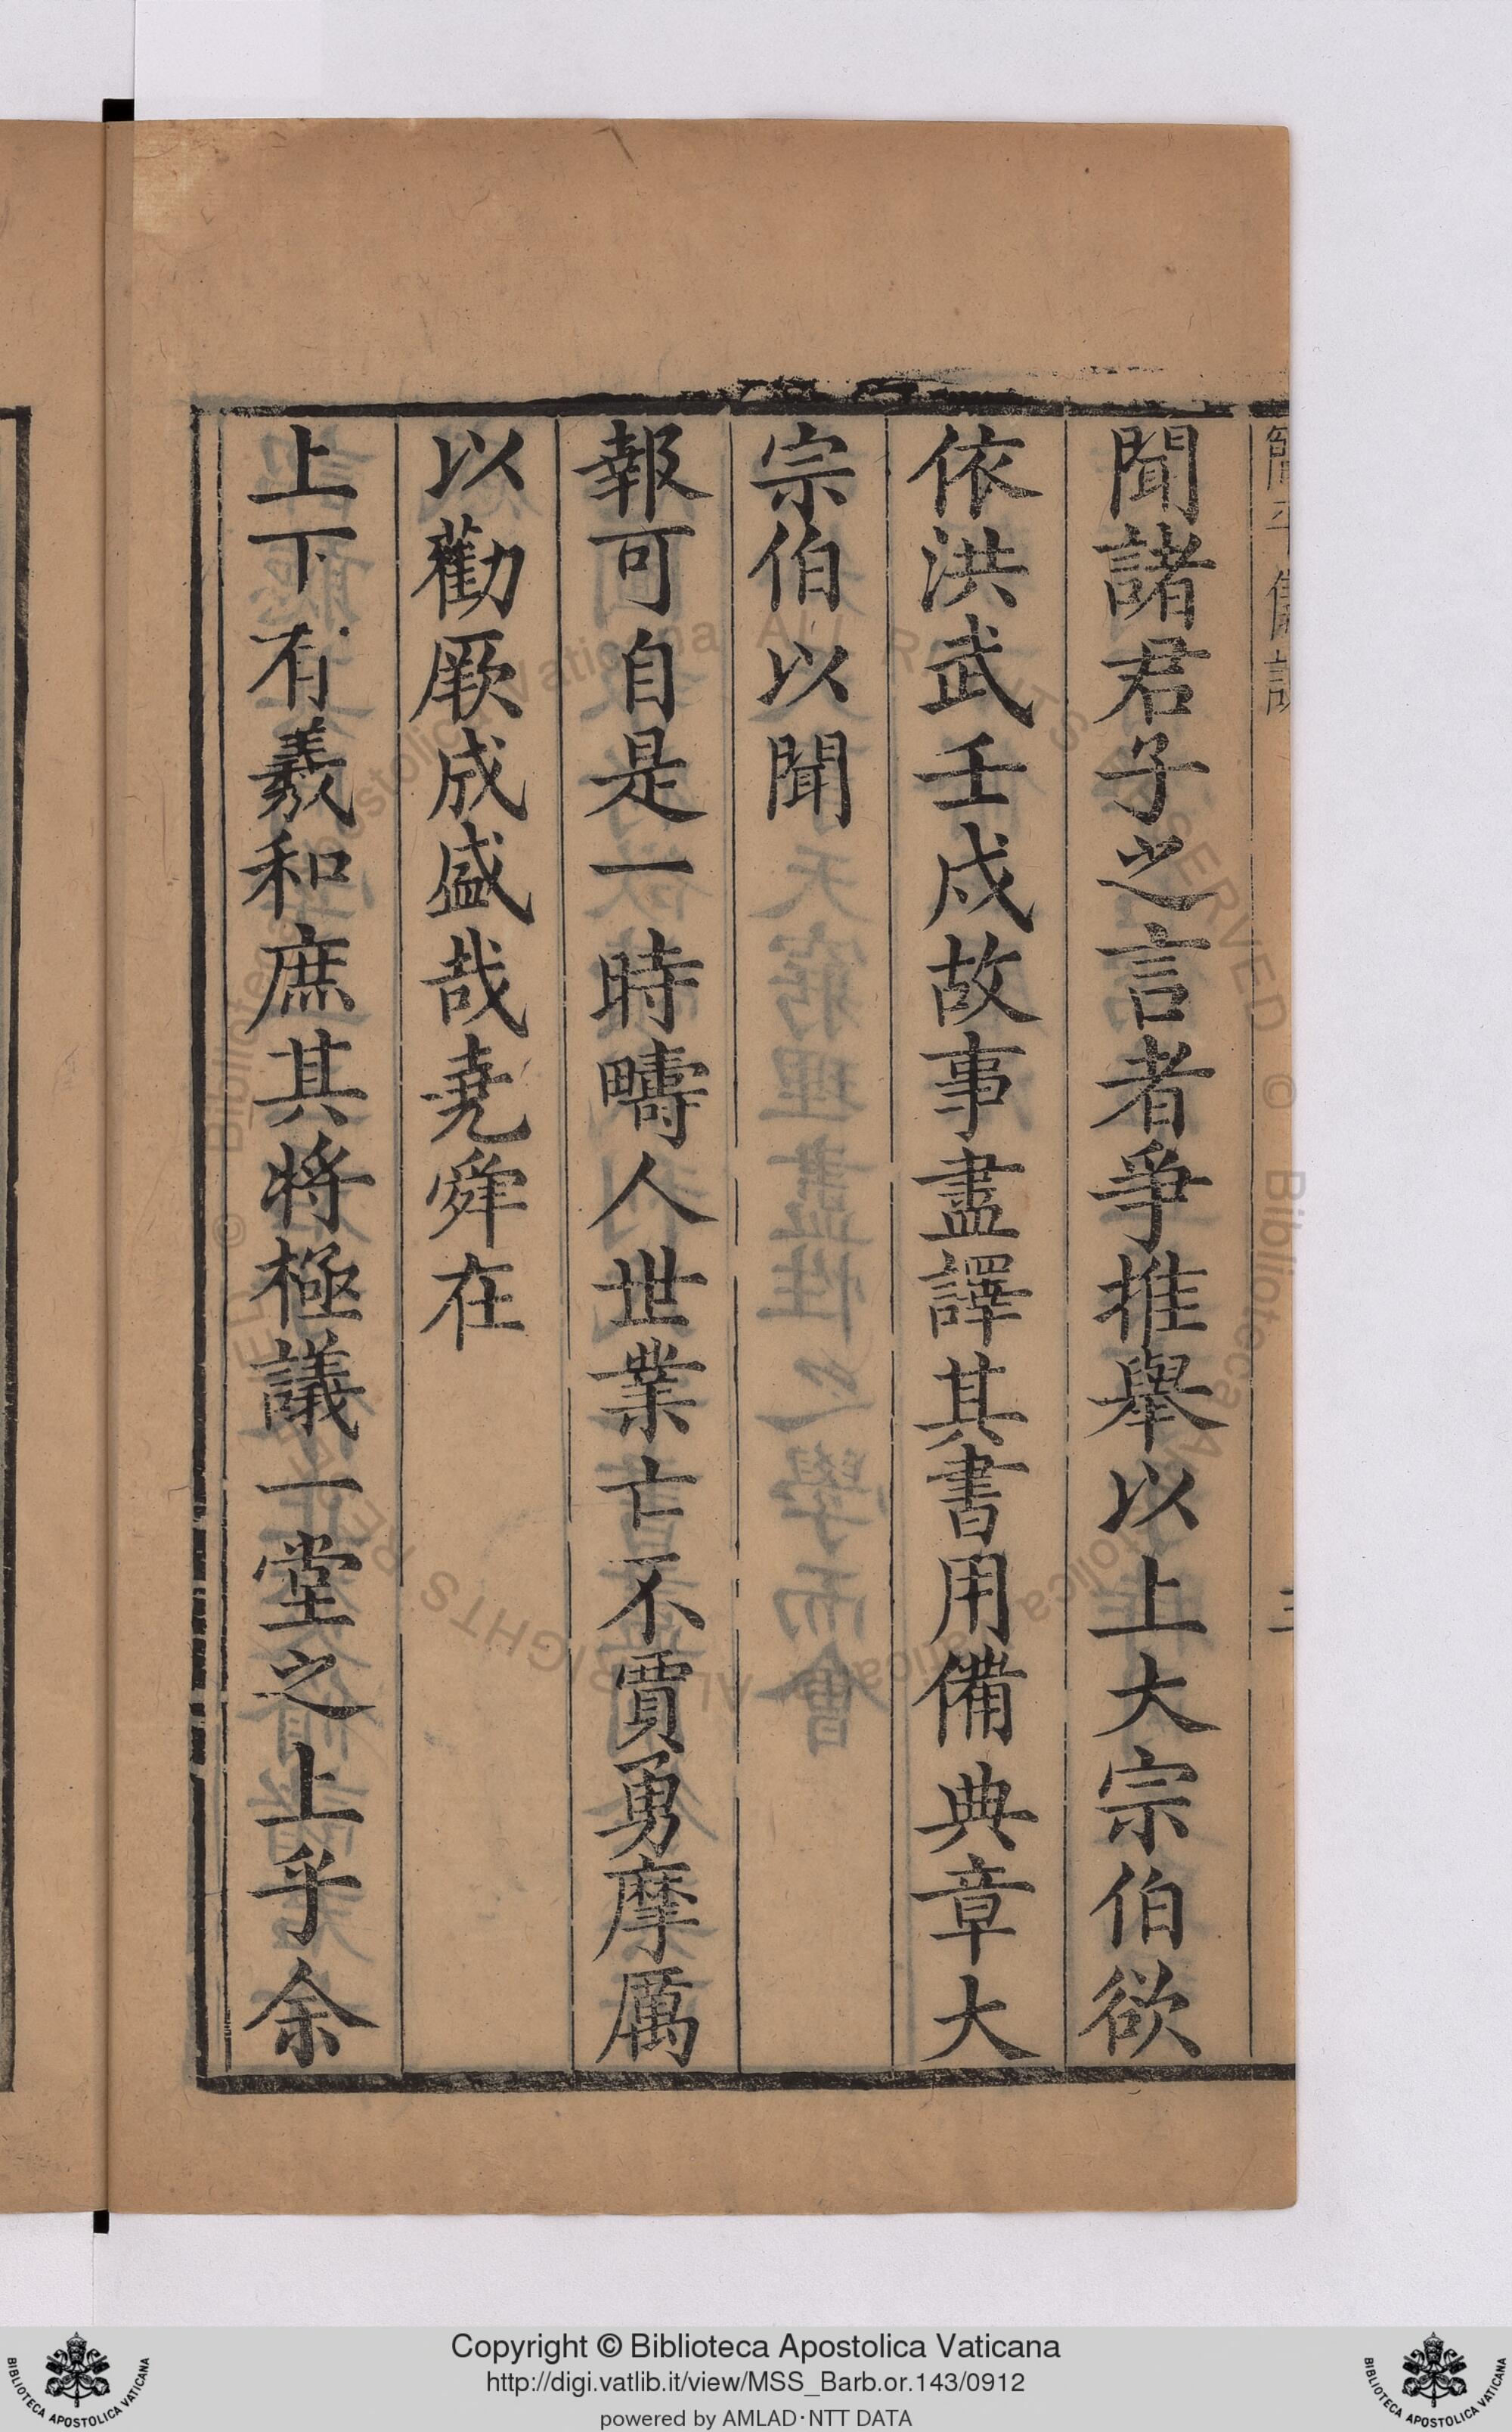 簡平儀說
三
聞諸君子之言者爭推舉以上大宗伯欲
依洪武壬戌故事盡譯其書用備典章大
宗伯以聞
報可自是一時疇人世業亡不賈勇摩厲
以勸厥成盛哉堯舜在
上下有羲和庶其將極議一堂之上乎余
Copyright © Biblioteca Apostolica Vaticana
http://digi.vatlib.it/view/MSS_Barb.or.143/0912
powered by AMLAD·NTT DATA
BIBLIOTECA APOSTOLICA VATICANA
BIBLIOTECA APOSTOLICA VATICANA